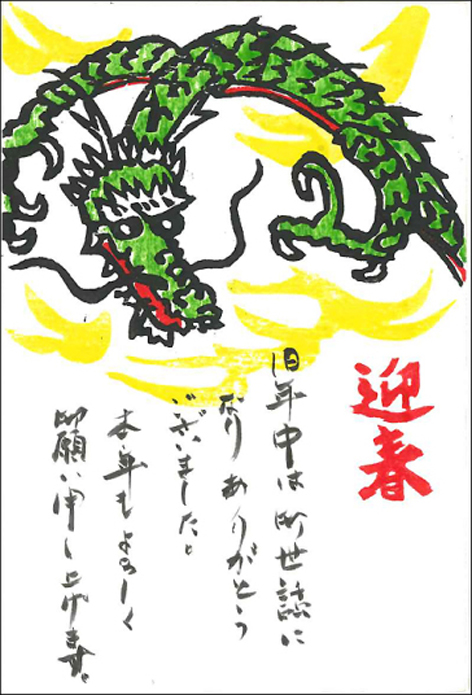 迎春
旧年中は御世話に
なりありがとう
ございました。
本年もよろしく
御願い申し上げます。